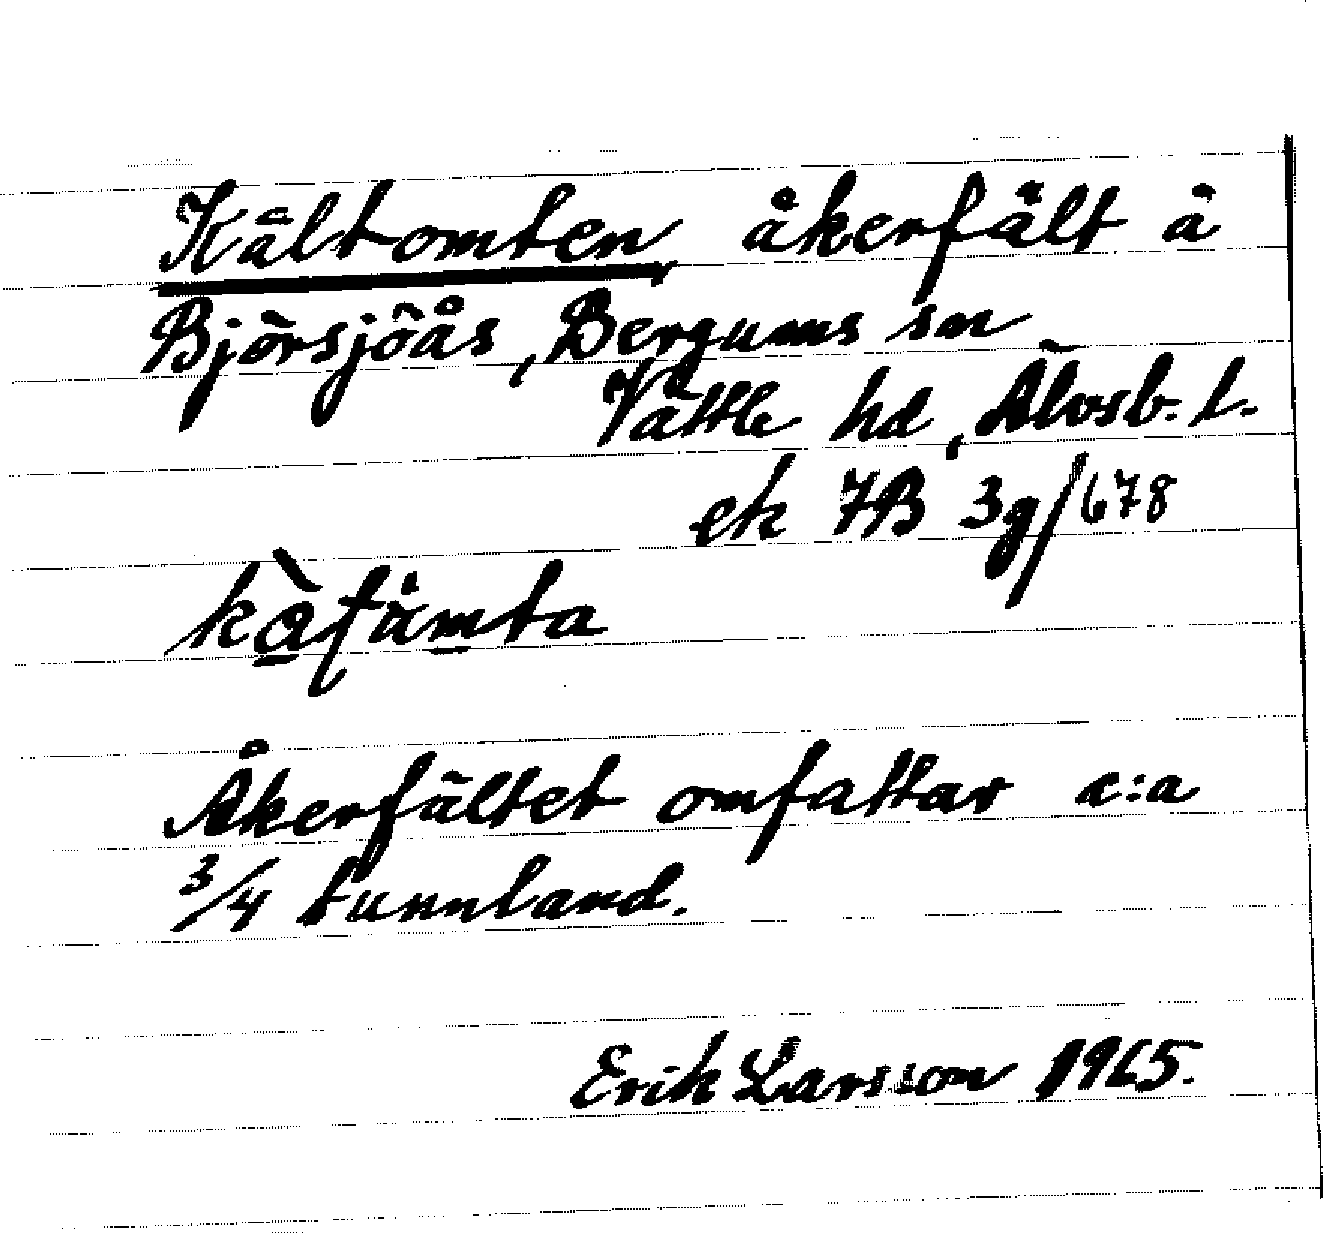 Kältomten, åkerfält å
Björsjöås, Bergums sn
Vättle hd, Älvsb. l.
ek 7B 3g/678
Åkerfältet omfattar c:a
3/4 tunnland.
Erik Larsson 1965.